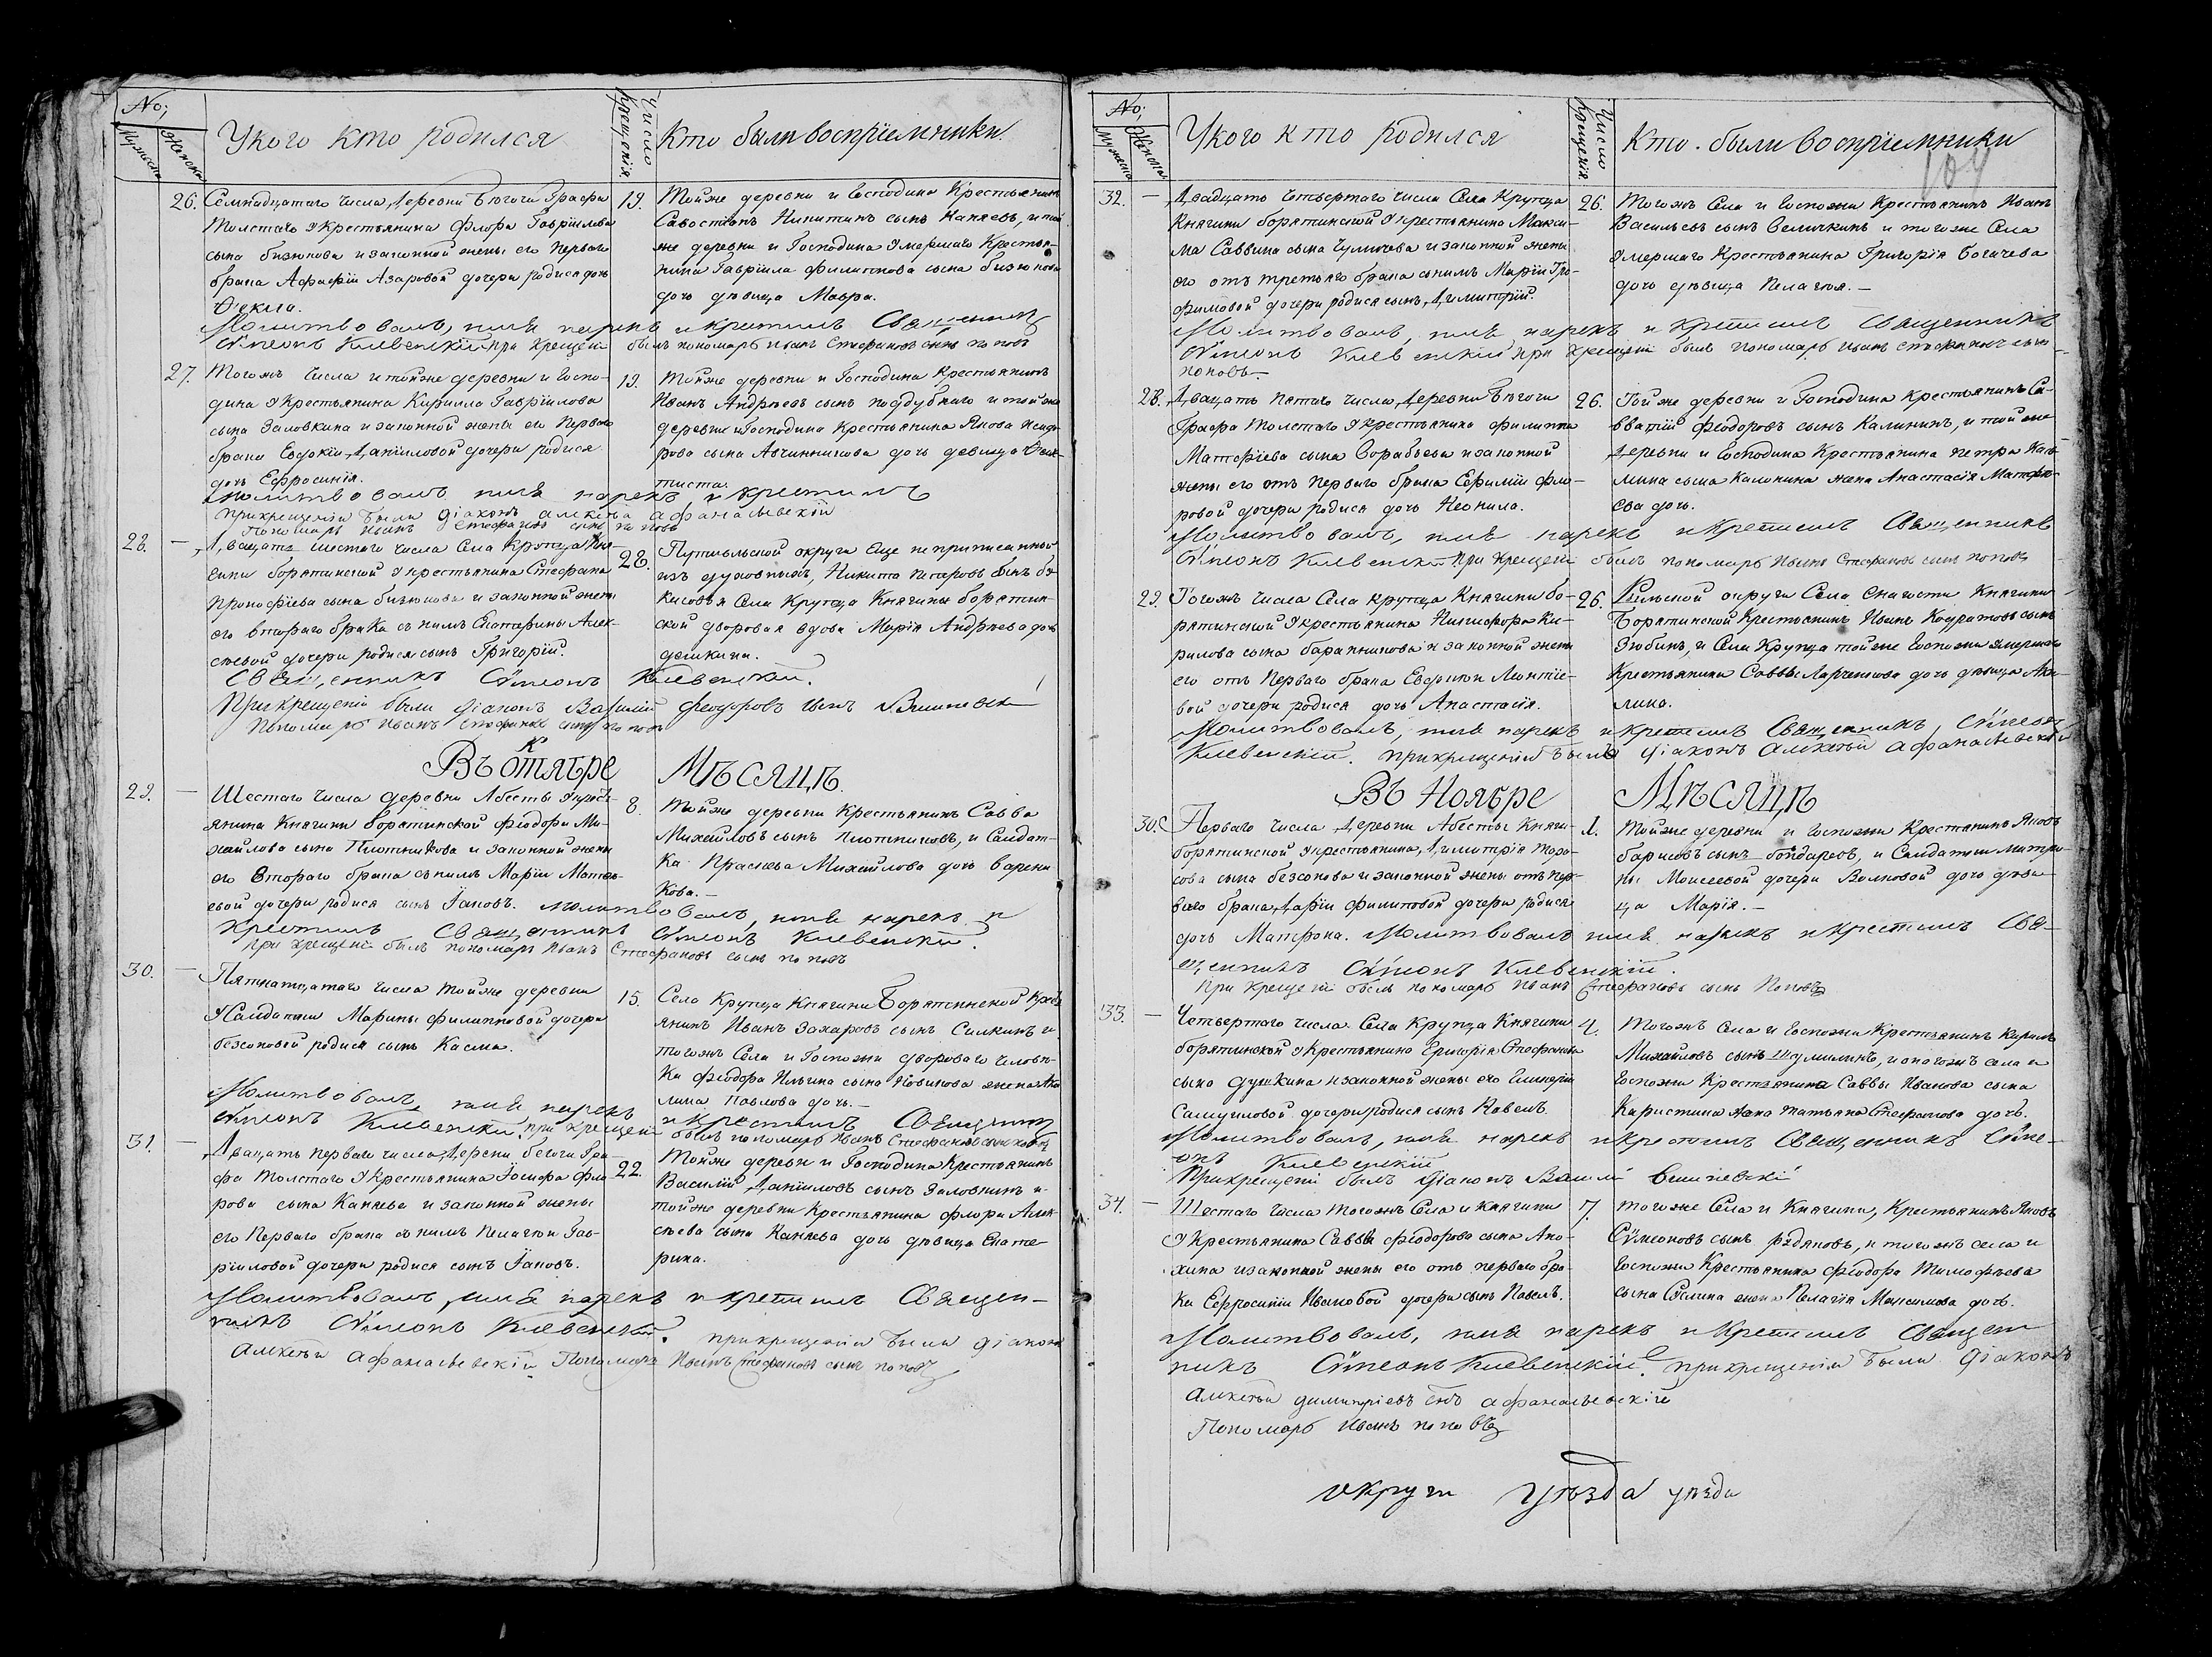 No;
Мужеска
Женска
У кого кто родился
Число Крещенія
Кто были воспріемники
26. Семнадцатаго числа, деревни Бегочи Графа
Толстаго у крестьянина Флора Гавріилова
сына Бизюкова и законной жены его перваго
брака Агафіи Азаровой дочери родися дочь
Ѳекла.
19. Тойже деревни и Господина Крестьянинъ
Савостіянъ Никитинъ сынъ Каняевъ, и той
же деревни и Господина умершаго Крестья-
нина Гавріила Филиппова сына Бизюкова
дочь девица Мавра.
Молитвовалъ, имя нарекъ и крестилъ Священникъ
Сѵмеонъ Клевенскій при крещеніи былъ пономарь Иванъ Стефановъ сынъ Поповъ
27. Тогожъ числа и тойже деревни и Госпо-
дина у крестьянина Кирилла Гавріилова
сына Заловкина и законной жены его перваго
брака Евдокіи Даніиловой дочери родися
дочь Ефросинія.
19. Тойже деревни и Господина крестьянинъ
Иванъ Андреевъ сынъ Поддубнаго и тойже
деревни и Господина крестьянина Якова
рова сына Авчинникова дочь девица Ѳеок-
тиста.
Молитвовалъ имя нарекъ, и крестилъ
при крещеніи были діаконъ Алексей Афанасьевскій
Пономарь Иванъ Стефановъ сынъ Поповъ
28. — Двацать шестаго числа Села Крупца Кня-
гини Борятинской у крестьянина Стефана
Прокофіева сына Бизюкова и законной жены
его втораго брака съ нимъ Екатерины Алек-
сеевой дочери родися сынъ Григорій.
28. Путивльской округи еще не приписанной
изъ духовныхъ, Никита Петровъ сынъ
и Села Крупца Княгины Борятин-
ской дворовая вдова Марія Андреева дочь
Священникъ Сѵмеонъ Клевенскій.
При крещеніи были діаконъ Василій Феодоровъ сынъ Вишневскій
Пономарь Иванъ Стефановъ сынъ Поповъ
Въ Октябре Месяце.
29. — Шестаго числа деревни Абесты у кресть-
янина Княгини Борятинской Феодора Ми-
хайлова сына Плотникова и законной жены
его втораго брака съ нимъ Маріи Матве-
евой дочери родися сынъ Іаковъ. Молитвовалъ, имя нарекъ и
8. Тойже деревни Крестьянинъ Савва
Михайловъ сынъ Плотниковъ, и Салдат-
ка Прасковья Михайлова дочь
кова.—
крестилъ Священникъ Сѵмеонъ Клевенскій.
При крещеніи былъ пономарь Иванъ Стефановъ сынъ Поповъ
30. — Пятнатцатаго числа тойже деревни
у Салдатки Марины Филипповой дочери
Безсоновой родися сынъ Касма.
15. Села Крупца Княгини Борятинской Кресть-
янинъ Иванъ Захаровъ сынъ Силкинъ и
тогожъ Села и Госпожи двороваго челове-
ка Феодора Ильина сына Новикова жена Аку
лина Павлова дочь.—
Молитвовалъ, имя нарекъ и крестилъ Священникъ
Сѵмеонъ Клевенскій. при крещеніи былъ пономарь Иванъ Стефановъ сынъ Поповъ
31. — Двацать перваго числа деревни Бегочи Гра-
фа Толстаго у крестьянина Іосифа Фло-
рова сына Каняева и законной жены
его перваго брака съ нимъ Пелагеи Гав-
ріиловой дочери родися сынъ Іаковъ.
22. Тойже деревни и Господина Крестьянинъ
Василій Даніиловъ сынъ Заловкинъ и
тойже деревни Крестьянина Флора Алек-
сеева сына Каняева дочь девица Екате-
рина.
Молитвовалъ, имя нарекъ и крестилъ Священ-
никъ Сѵмеонъ Клевенскій. При крещеніи были діаконъ
Алексей Афанасьевскій Пономарь Иванъ Стефановъ сынъ Поповъ
No;
Мужеска
Женска
У кого кто родился
Число Крещенія
Кто были воспріемники
104
32. — Двадцать четвертаго числа Села Крупца
Княгини Борятинской у крестьянина Макси-
ма Саввина сына Чумичева и законной жены
его отъ третьяго брака съ нимъ Маріи Тро-
фимовой дочери родися сынъ, Димитрій.
26. Тогожъ Села и Госпожи Крестьянинъ Иванъ
Васильевъ сынъ Величкинъ и тогоже Села
умершаго Крестьянина Григорія Богачева
дочь девица Пелагея.—
Молитвовалъ, имя нарекъ и крестилъ Священникъ
Сѵмеонъ Клевенскій при крещеніи былъ пономарь Иванъ Стефановъ сынъ
Поповъ.
28. Двацать пятаго числа, деревни Бегочи
Графа Толстаго у крестьянина Филиппа
Матфіева сына Воробьева и законной
жены его отъ перваго брака Ефиміи Фло-
ровой дочери родися дочь Неонила.
26. Тойже деревни и Господина крестьянинъ Са-
вватій Феодоровъ сынъ Калининъ, и тойже
деревни и Господина Крестьянина Петра Кали-
нина сына Калинина жена Анастасія Матфе-
ева дочь.
Молитвовалъ, имя нарекъ и крестилъ Священникъ
Сѵмеонъ Клевенскій при крещеніи былъ пономарь Иванъ Стефановъ сынъ Поповъ
29. Тогожъ числа Села Крупца Княгини Бо-
рятинской у крестьянина Никифора Ки-
рилова сына Баранникова и законной жены
его отъ перваго брака Евфиміи Леонтіе-
вой дочери родися дочь Анастасія.
26. Рыльской округи Села Снагости Княгини
Борятинской Крестьянинъ Иванъ Кодратовъ сынъ
Зюбинъ, и Села Крупца тойже Госпожи умершаго
Крестьянина Саввы Ларченкова дочь девица Аку-
лина.
Молитвовалъ, имя нарекъ и крестилъ Священникъ, Сѵмеонъ
Клевенскій. при крещеніи былъ діаконъ Алексей Афанасьевскій
Въ Ноябре Месяце
30. Перваго числа деревни Абесты Княги-
Борятинской у крестьянина, Димитрія
сова сына Безсонова и законной жены отъ пер-
ваго брака, Даріи Филиповой дочери родися
дочь Матрона. Молитвовалъ имя нарекъ и крестилъ Свя-
1. Тойже деревни и Госпожи Крестянинъ Яковъ
Барисовъ сынъ Бондаревъ, и Салдатки Матро-
ны Моисеевой дочери Волковой дочь деви-
ца Марія.—
щенникъ Сѵмеонъ Клевенскій.
При крещеніи былъ пономарь Иванъ Стефановъ сынъ Поповъ
33. — Четвертаго числа Села Крупца Княгини
Борятинской у крестьянина Григорія Стефанова
сына Душкина и законной жены его Гликеріи
Самуиловой дочери родися сынъ Павелъ.
4. Тогожъ Села и Госпожи Крестьянинъ Кирилъ
Михайловъ сынъ Шумилинъ, и тогожъ села и
Госпожи Крестьянина Саввы Иванова сына
Каристина жена Татьяна Стефанова дочь.
Молитвовалъ, имя нарекъ и крестилъ Священникъ Сѵме-
онъ Клевенскій
При крещеніи былъ діаконъ Василій Вишневскій
34. — Шестаго числа тогожъ Села и Княгини
у крестьянина Саввы Феодорова сына Ано-
хина и законной жены его отъ перваго бра-
ка Ефросиніи Ивановой дочери сынъ Павелъ.
7. Тогоже Села и Княгини, Крестьянинъ Яковъ
Сѵмеоновъ сынъ Рядновъ, и тогожъ села и
Госпожи Крестьянина Феодора Тимофеева
сына жена Пелагія Максимова дочь.
Молитвовалъ, имя нарекъ и крестилъ Священ
никъ Сѵмеонъ Клевенскій. при крещеніи были діаконъ
Алексей Димитріевъ сынъ Афанасьевскій
Пономарь Иванъ Поповъ
округи уезда уезда